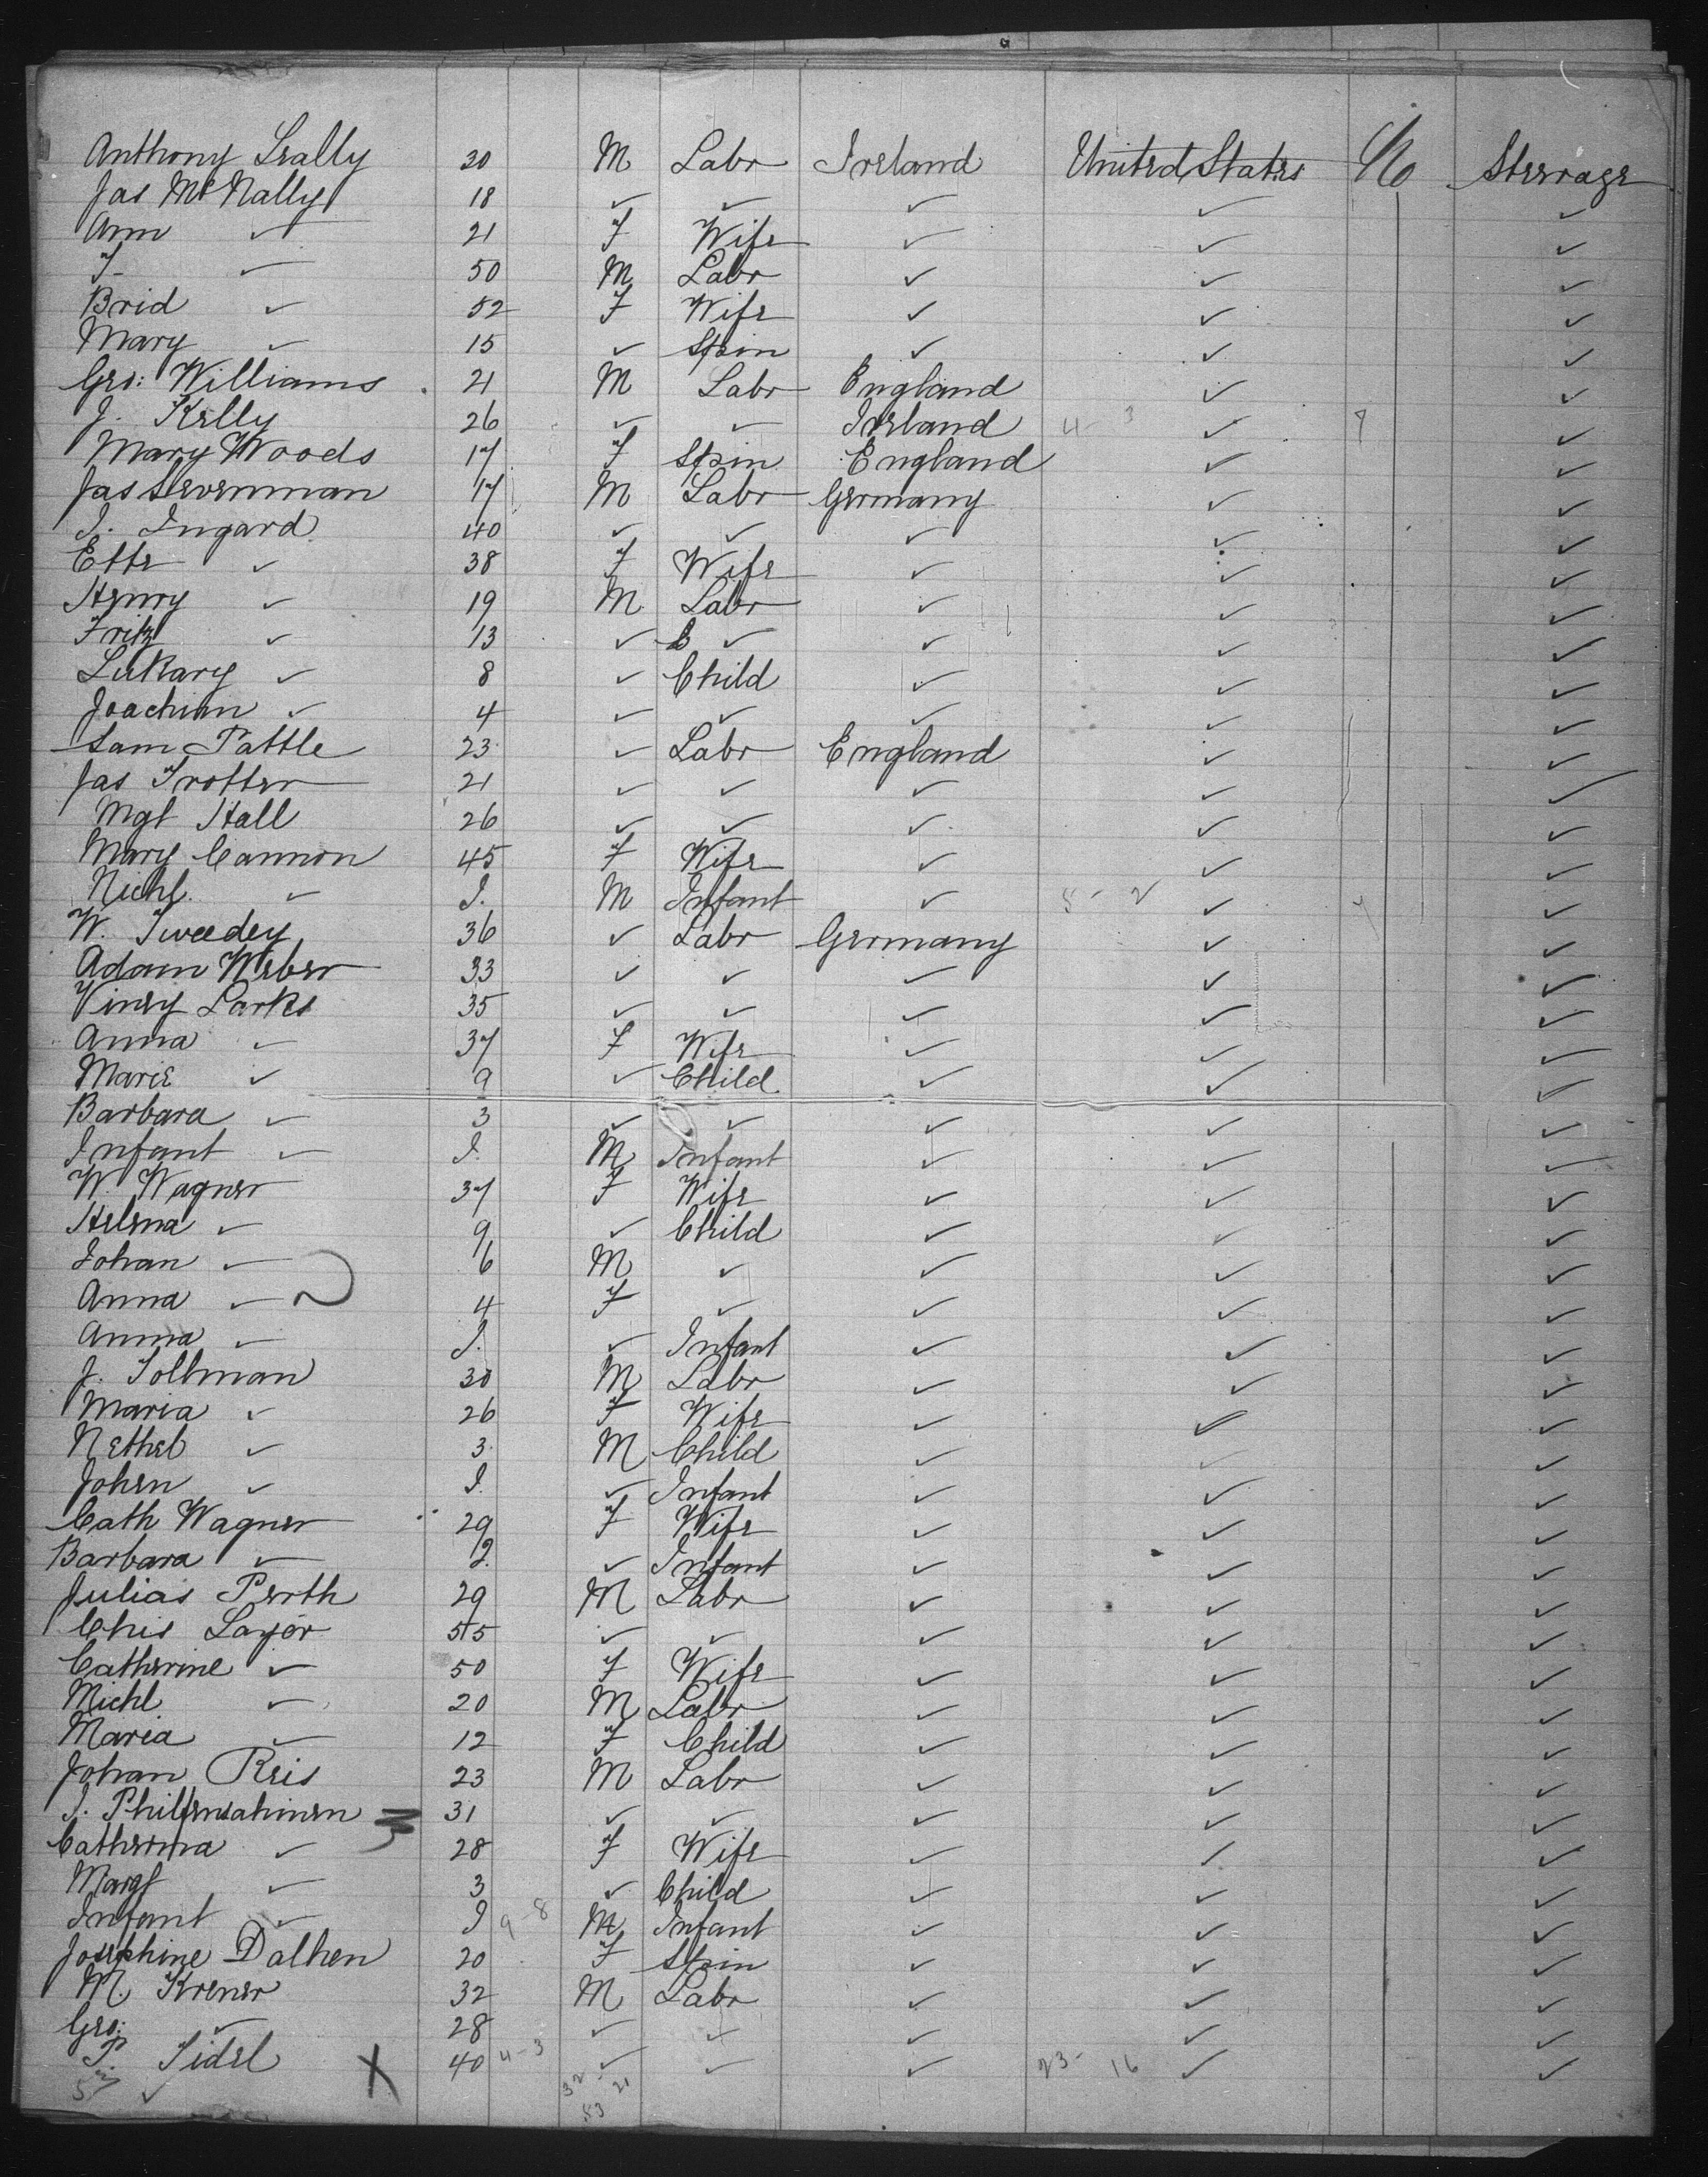 Anthony Leally 30 M Labr Ireland United States No Steerage
Jas McNally 18 ✓ ✓ ✓ ✓ ✓
Ann ✓ 21 F Wife ✓ ✓ ✓
T ✓ 50 M Labr ✓ ✓ ✓
Brid ✓ 52 F Wife ✓ ✓ ✓
Mary ✓ 15 ✓ Spin ✓ ✓ ✓
Geo: Williams 21 M Labr England ✓ ✓
J. Kelly 26 ✓ ✓ Ireland 4-3 ✓ ✓
Mary Woods 17 F Spin England ✓ ✓
Jas 17 M Labr Germany ✓ ✓
J. Ingard 40 ✓ ✓ ✓ ✓ ✓
Ette ✓ 38 F Wife ✓ ✓ ✓
Henry ✓ 19 M Labr ✓ ✓ ✓
Fritz ✓ 13 ✓ ✓ ✓ ✓ ✓
Lukary ✓ 8 ✓ Child ✓ ✓ ✓
Joachim ✓ 4 ✓ ✓ ✓ ✓ ✓
Sam Pattle 23 ✓ Labr England ✓ ✓
Jas Trotter 21 ✓ ✓ ✓ ✓ ✓
Mgt Hall 26 ✓ ✓ ✓ ✓ ✓
Mary Cannon 45 F Wife ✓ ✓ ✓
Nichl. ✓ I. M Infant ✓ 5-2 ✓ ✓
W. Tweedey 36 ✓ Labr Germany ✓ ✓
Adam Weber 33 ✓ ✓ ✓ ✓ ✓
Viney Larks 35 ✓ ✓ ✓ ✓ ✓
Anna ✓ 37 F Wife ✓ ✓ ✓
Marie ✓ 9 ✓ Child ✓ ✓ ✓
Barbara ✓ 3 ✓ ✓ ✓ ✓ ✓
Infant ✓ I. M Infant ✓ ✓ ✓
W. Wagner 37 F Wife ✓ ✓ ✓
Helena ✓ 9 ✓ Child ✓ ✓ ✓
Johan ✓ 6 M ✓ ✓ ✓ ✓
Anna ✓ 4 F ✓ ✓ ✓ ✓
Anna ✓ I. ✓ Infant ✓ ✓ ✓
J. Tollman 30 M Labr ✓ ✓ ✓
Maria ✓ 26 F Wife ✓ ✓ ✓
Nethel ✓ 3 M Child ✓ ✓ ✓
Johen ✓ I. ✓ Infant ✓ ✓ ✓
Cath Wagner 29 F Wife ✓ ✓ ✓
Barbara ✓ I. ✓ Infant ✓ ✓ ✓
Julias Perth 29 M Labr ✓ ✓ ✓
Chis Layor 55 ✓ ✓ ✓ ✓ ✓
Catherine ✓ 50 F Wife ✓ ✓ ✓
Michl ✓ 20 M Labr ✓ ✓ ✓
Maria ✓ 12 F Child ✓ ✓ ✓
Johan Reis 23 M Labr ✓ ✓ ✓
J. 31 ✓ ✓ ✓ ✓ ✓
Catherina ✓ 28 F Wife ✓ ✓ ✓
Margt ✓ 3 ✓ Child ✓ ✓ ✓
Infant ✓ I 9-8 M Infant ✓ ✓ ✓
Josephine Dalhen 20 F Spin ✓ ✓ ✓
M. Krener 32 M Labr ✓ ✓ ✓
Geo: ✓ 28 ✓ ✓ ✓ ✓ ✓
P. Tidel X 40 4-3 ✓ ✓ ✓ 23-16 ✓ ✓
32 21
53